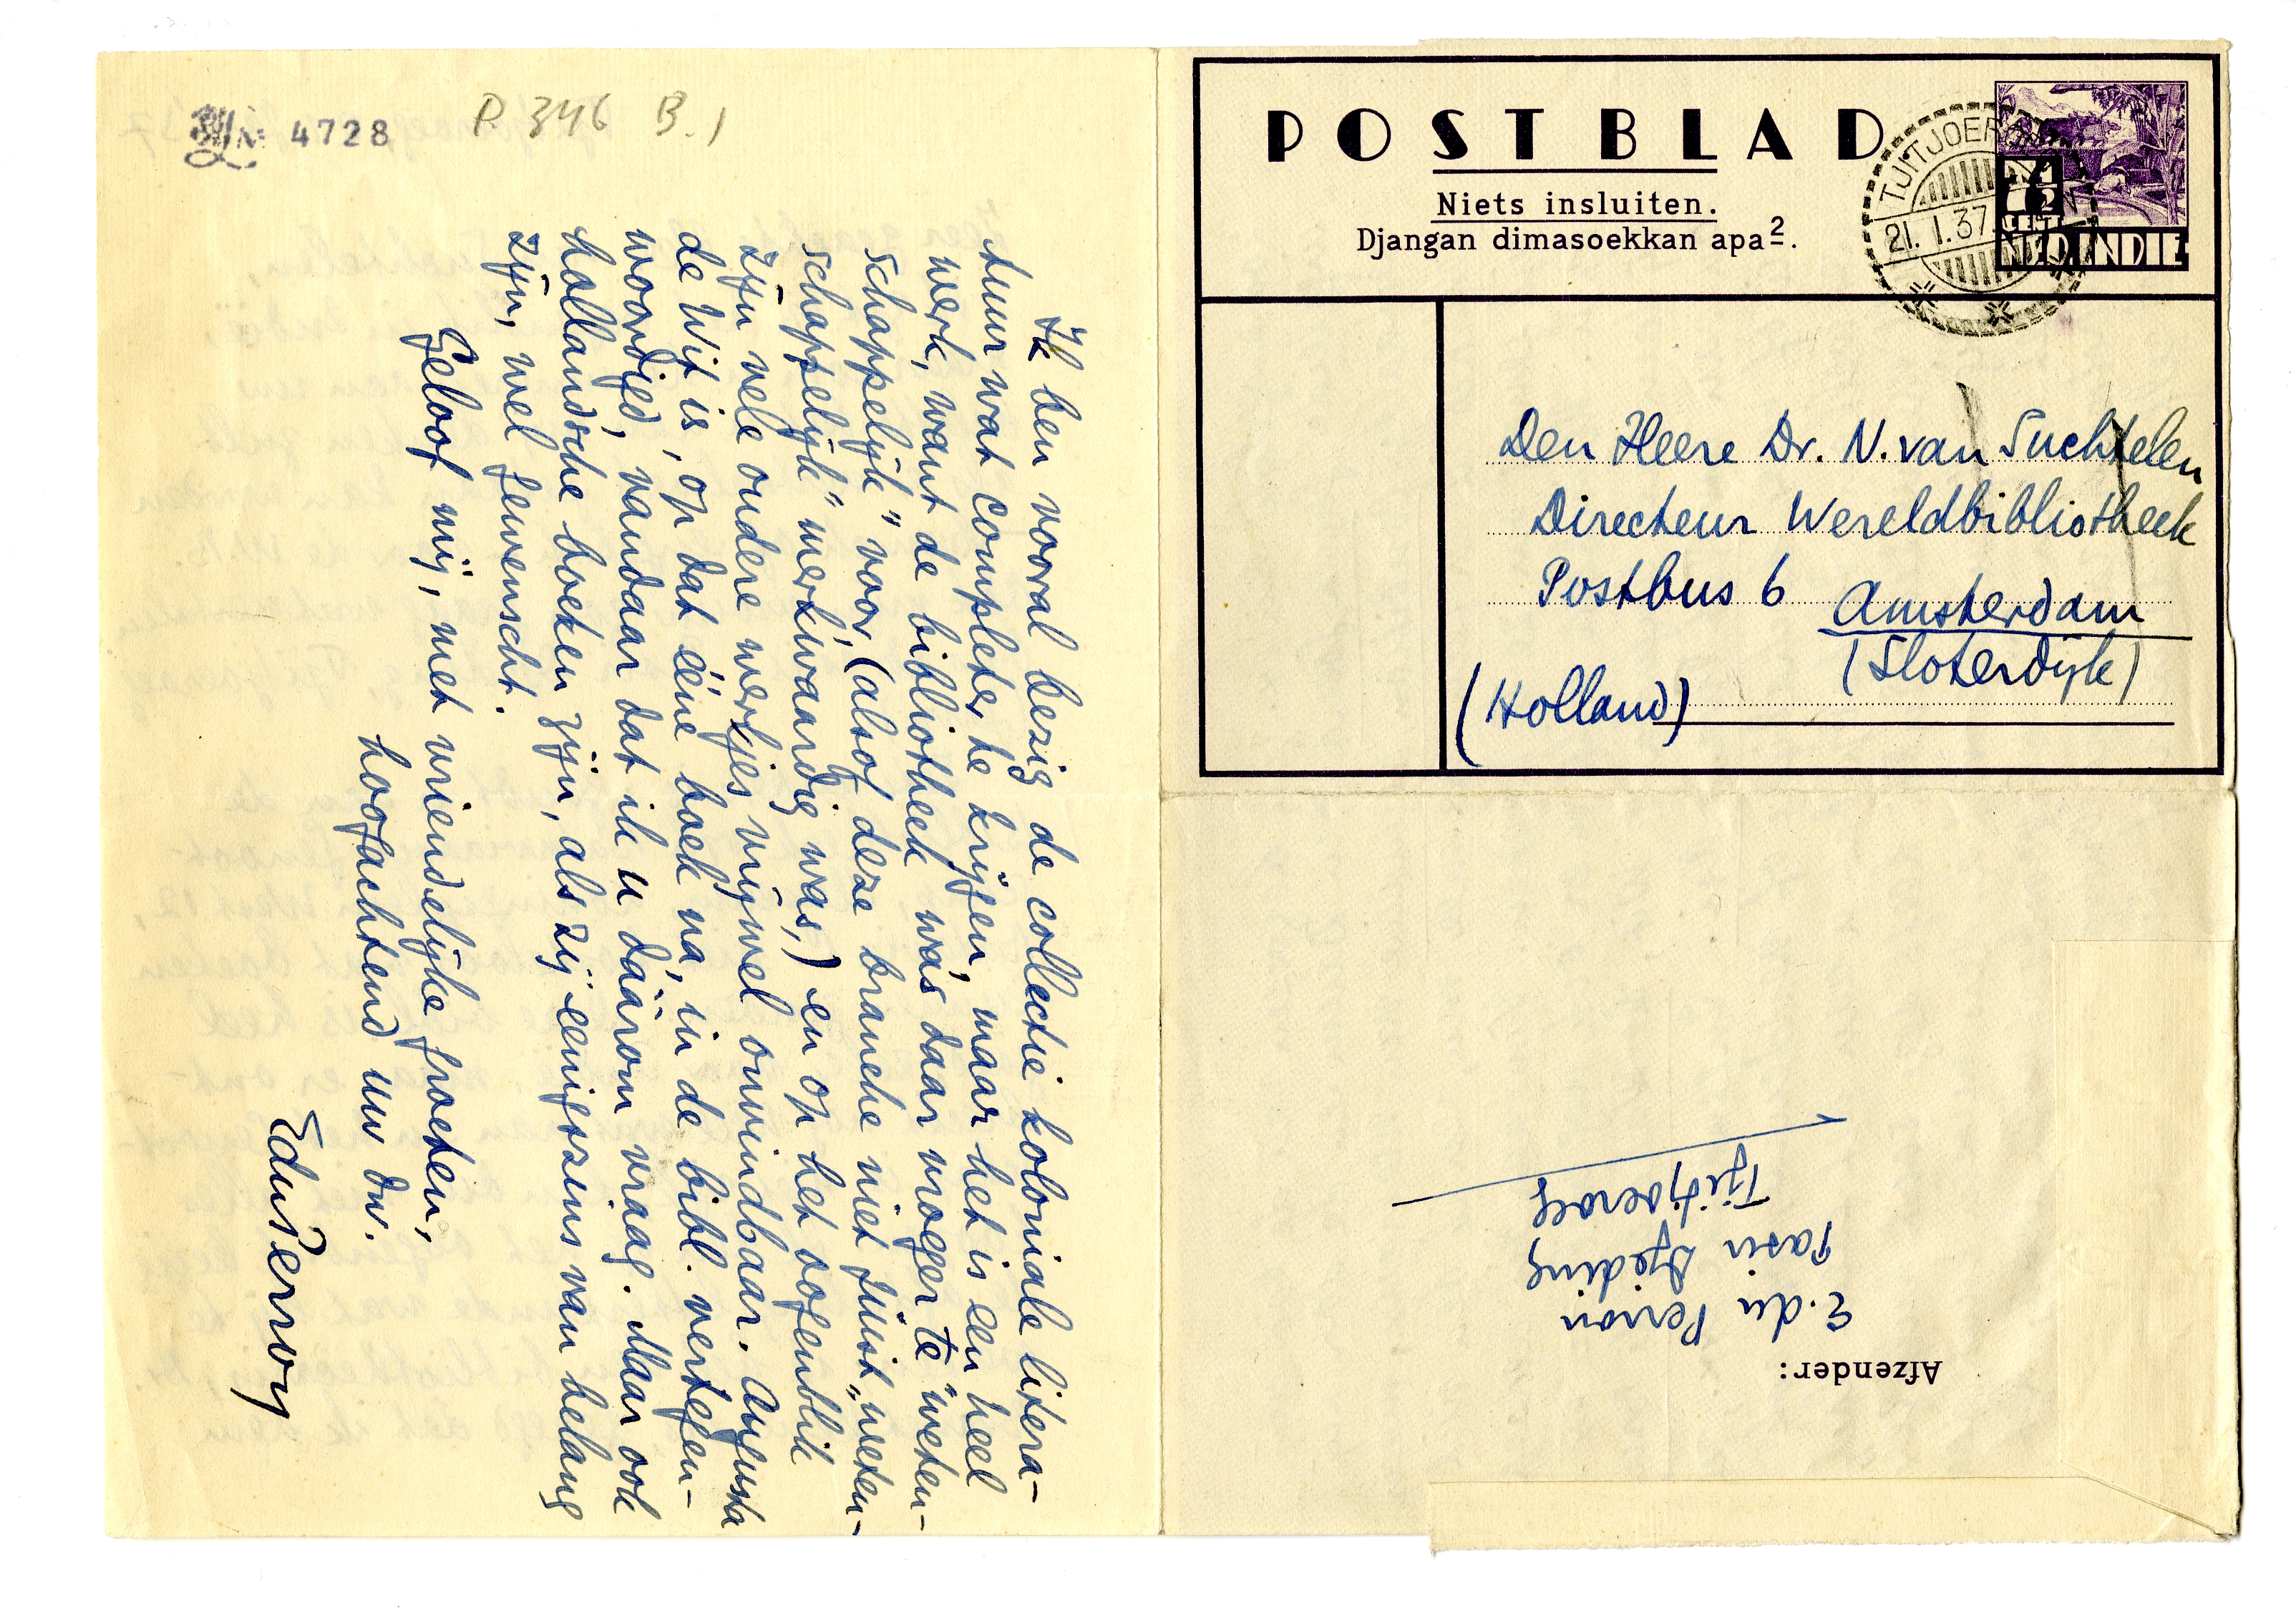 No 4728
P 346 B. 1
Ik ben vooral bezig de collectie koloniale litera-
tuur wat completer te krijgen, maar het is een heel
werk, want de bibliotheek was daar vroeger te "weten-
schappelijk" voor, (alsof deze branche niet júist „weten-
schappelijk" merkwaardig was,) en op het oogenblik
zijn vele oudere werkjes vrijwel onvindbaar. Augusta
de Wit is, op dat ééne boek na, in de bibl. vertegen-
woordigd, vandaar dat ik u dáárom vraag. Maar ook
hollandsche boeken zijn, als zij eenigszins van belang
zijn, wel gewenscht.
Geloof mij, met vriendelijke groeten,
hoogachtend uw dw.
EduPerron
POSTBLAD
Niets insluiten.
Djangan dimasoekkan apa2.
TJITJOER
21.1.37
7½
CENT
NED INDIE
Den Heere Dr. N. van Suchtelen
Directeur Wereldbibliotheek
Postbus 6 Amsterdam
(Sloterdijk)
(Holland)
Afzender:
E. du Perron
Pasir Djeding
Tjitjoeroeg